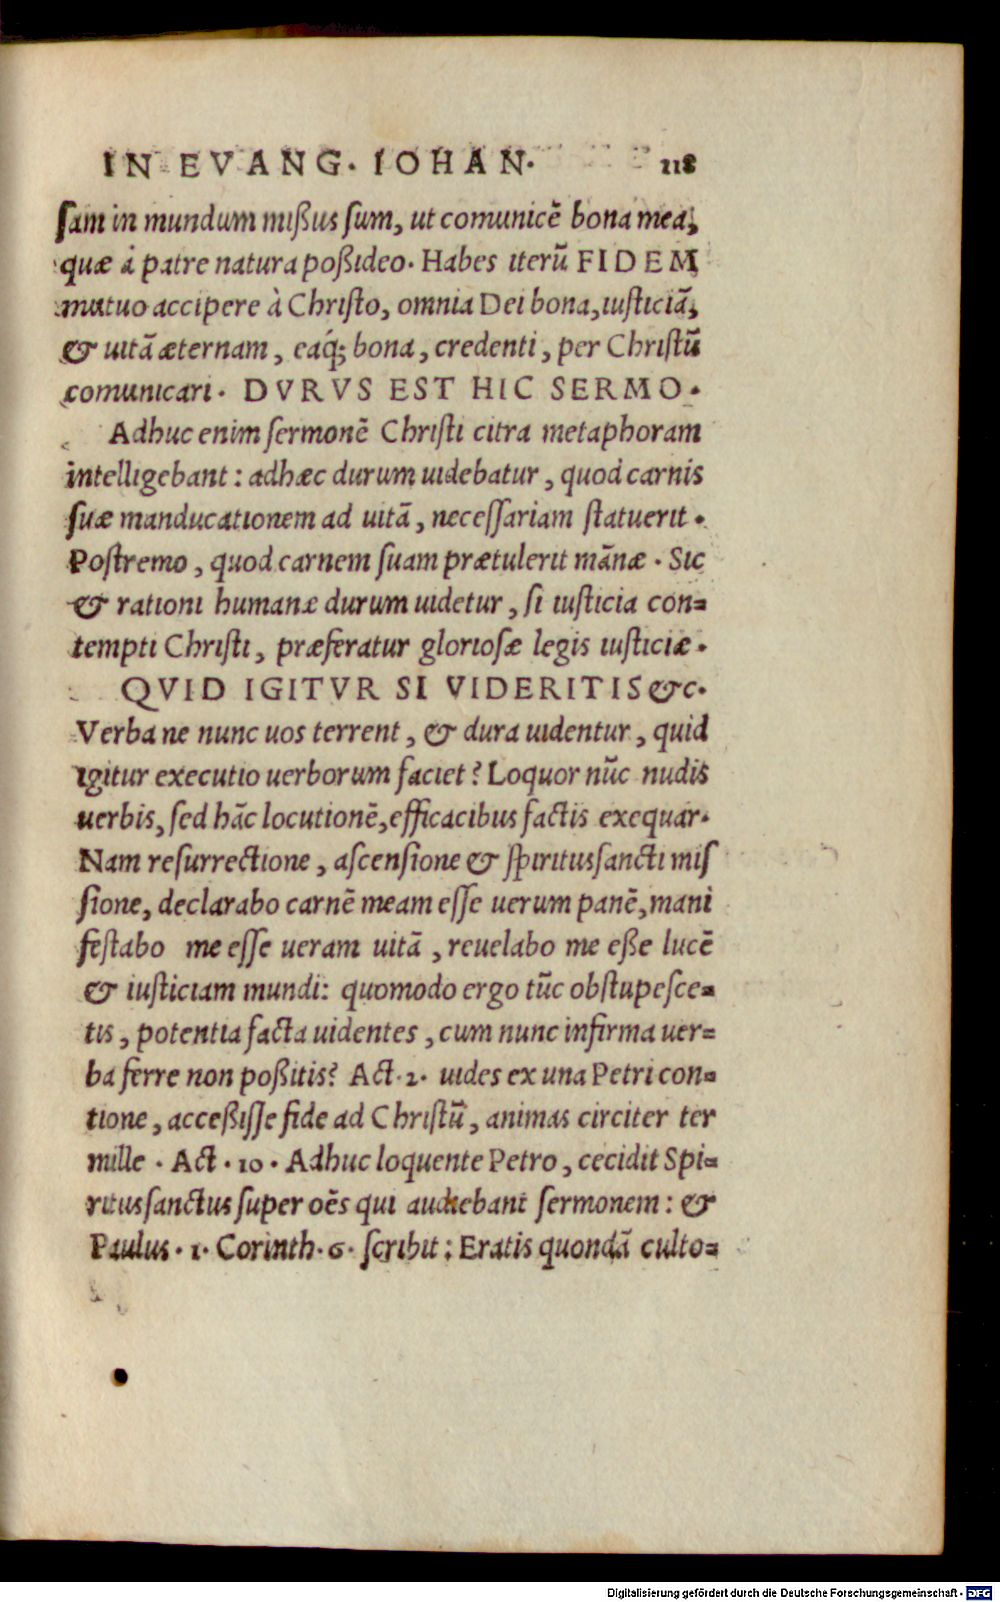 IN EVANG. IOHAN. 118
ſam in mundum mißus ſum, ut comunicē bona mea,
quæ à patre natura poßideo. Habes iterū FIDEM
mutuo accipere à Chriſto, omnia Dei bona, iuſticiā,
& uitā æternam, eaq́; bona, credenti, per Chriſtū
comunicari. DVRVS EST HIC SERMO.
Adhuc enim ſermonē Chriſti citra metaphoram
intelligebant: adhæc durum uidebatur, quod carnis
ſuæ manducationem ad uitā, neceſſariam ſtatuerit.
Poſtremo, quod carnem ſuam prætulerit mānæ. Sic
& rationi humanæ durum uidetur, ſi iuſticia con=
tempti Chriſti, præferatur glorioſæ legis iuſticiæ.
QVID IGITVR SI VIDERITIS &c.
Verba ne nunc uos terrent, & dura uidentur, quid
igitur executio uerborum faciet? Loquor nūc nudis
uerbis, ſed hāc locutionē, efficacibus factis exequar.
Nam reſurrectione, aſcenſione & ſpiritusſancti miſ
ſione, declarabo carnē meam eſſe uerum panē, mani
feſtabo me eſſe ueram uitā, reuelabo me eße lucē
& iuſticiam mundi: quomodo ergo tūc obſtupeſce=
tis, potentia facta uidentes, cum nunc infirma uer=
ba ferre non poßitis? Act. 2. uides ex una Petri con=
tione, acceßiſſe fide ad Chriſtū, animas circiter ter
mille. Act. 10. Adhuc loquente Petro, cecidit Spi=
ritusſanctus ſuper oēs qui audiebant ſermonem: &
Paulus. 1. Corinth. 6. ſcribit: Eratis quondā culto=
Digitalisierung gefördert durch die Deutsche Forschungsgemeinschaft - DFG